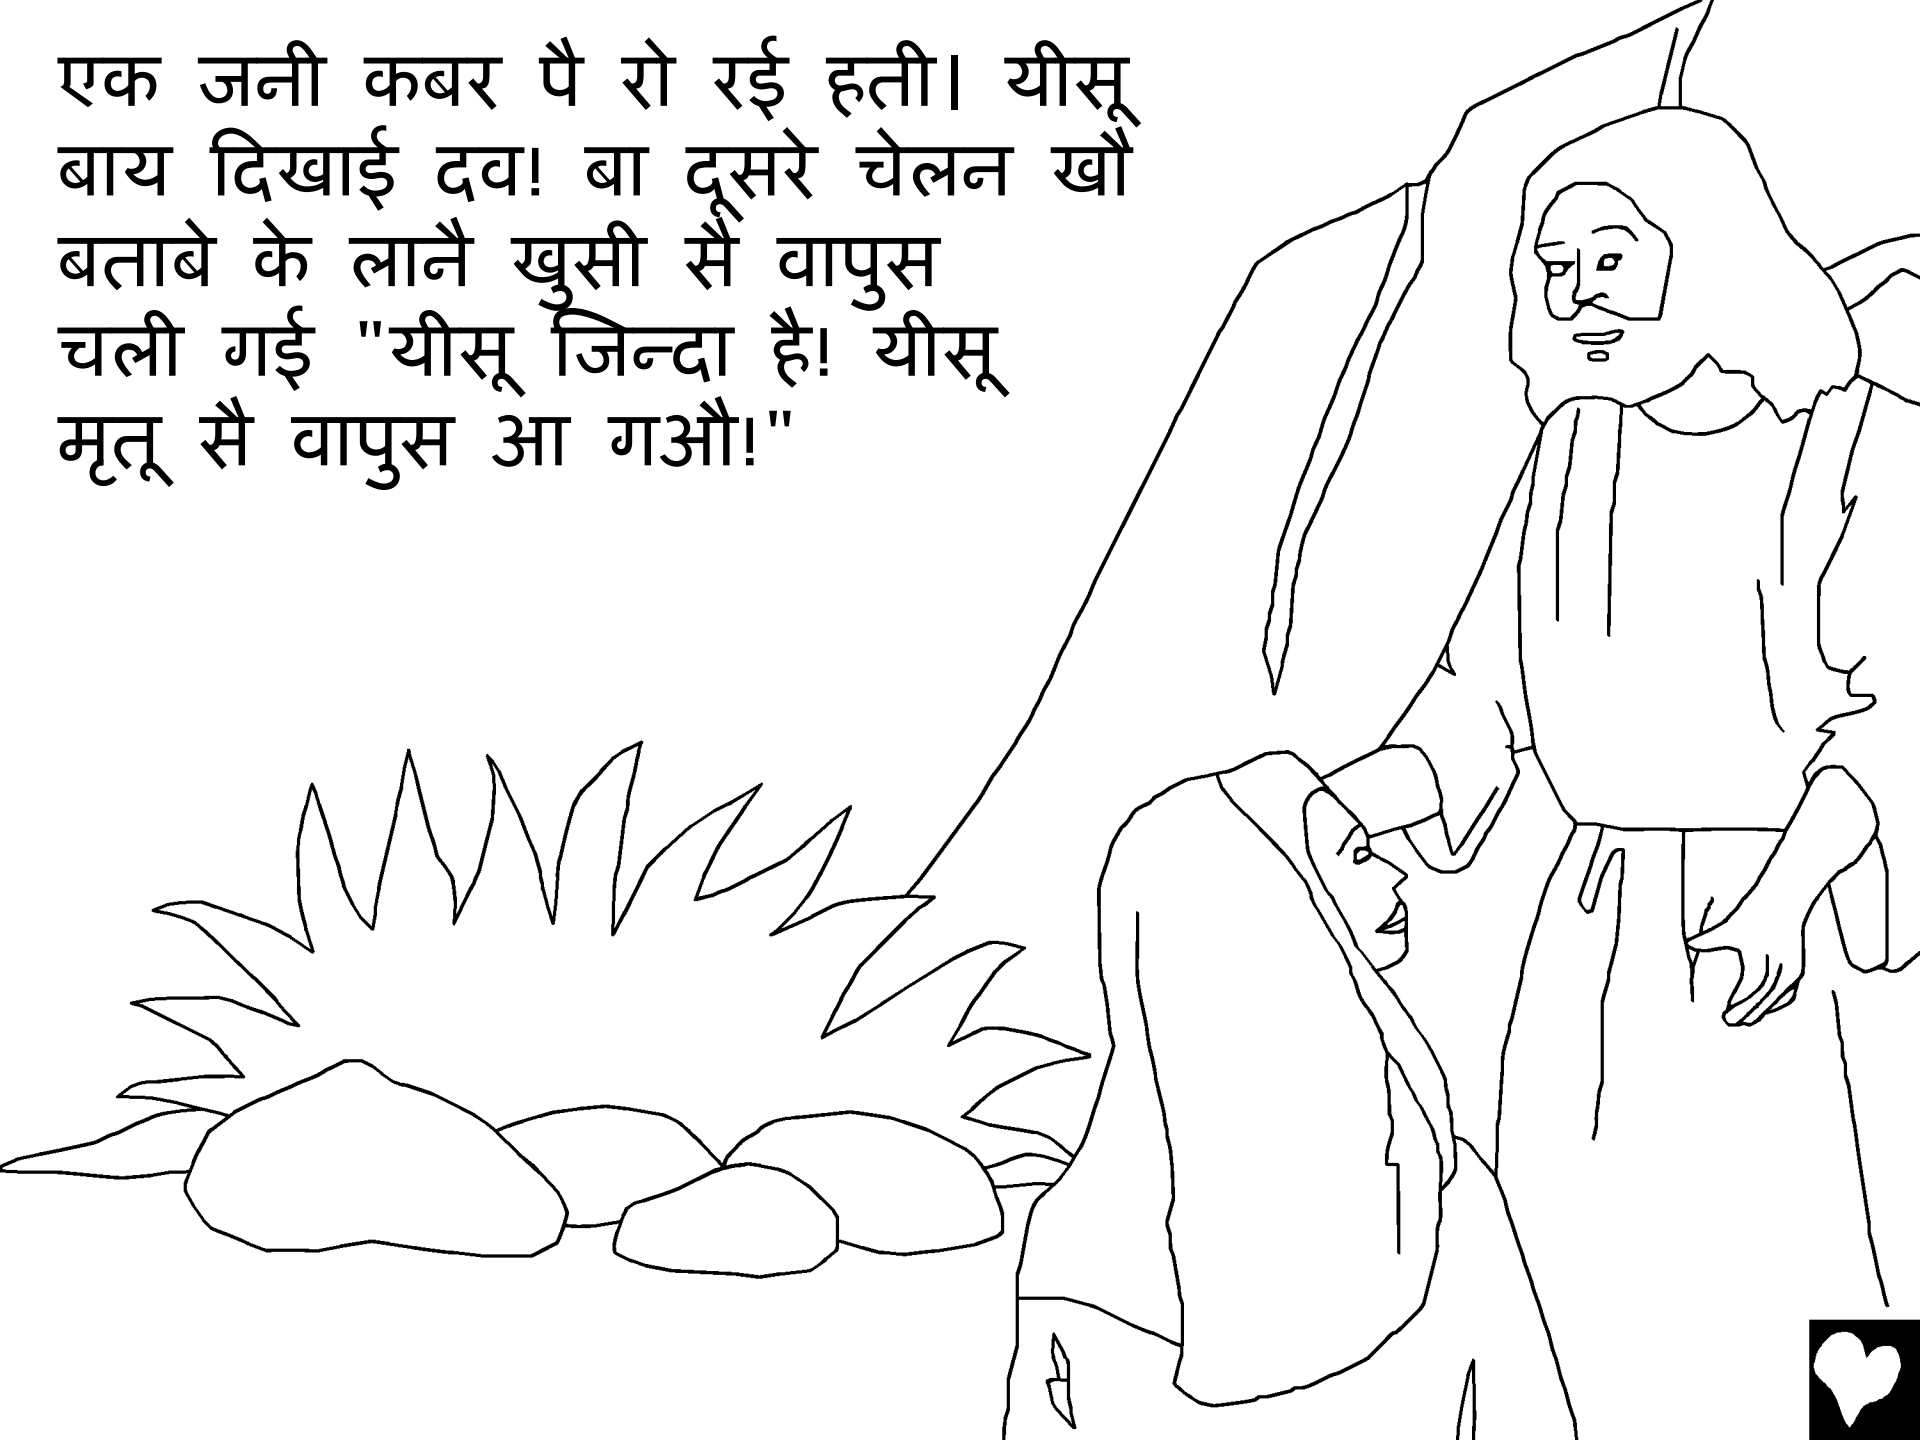 एक जनी कबर पै रो रई हती। यीसू
बाय दिखाई दव! बा दूसरे चेलन खौ
बताबे के लानै खुसी सै वापुस
चली गई "यीसू जिन्दा है! यीसू
मृतू सै वापुस आ गऔ!"